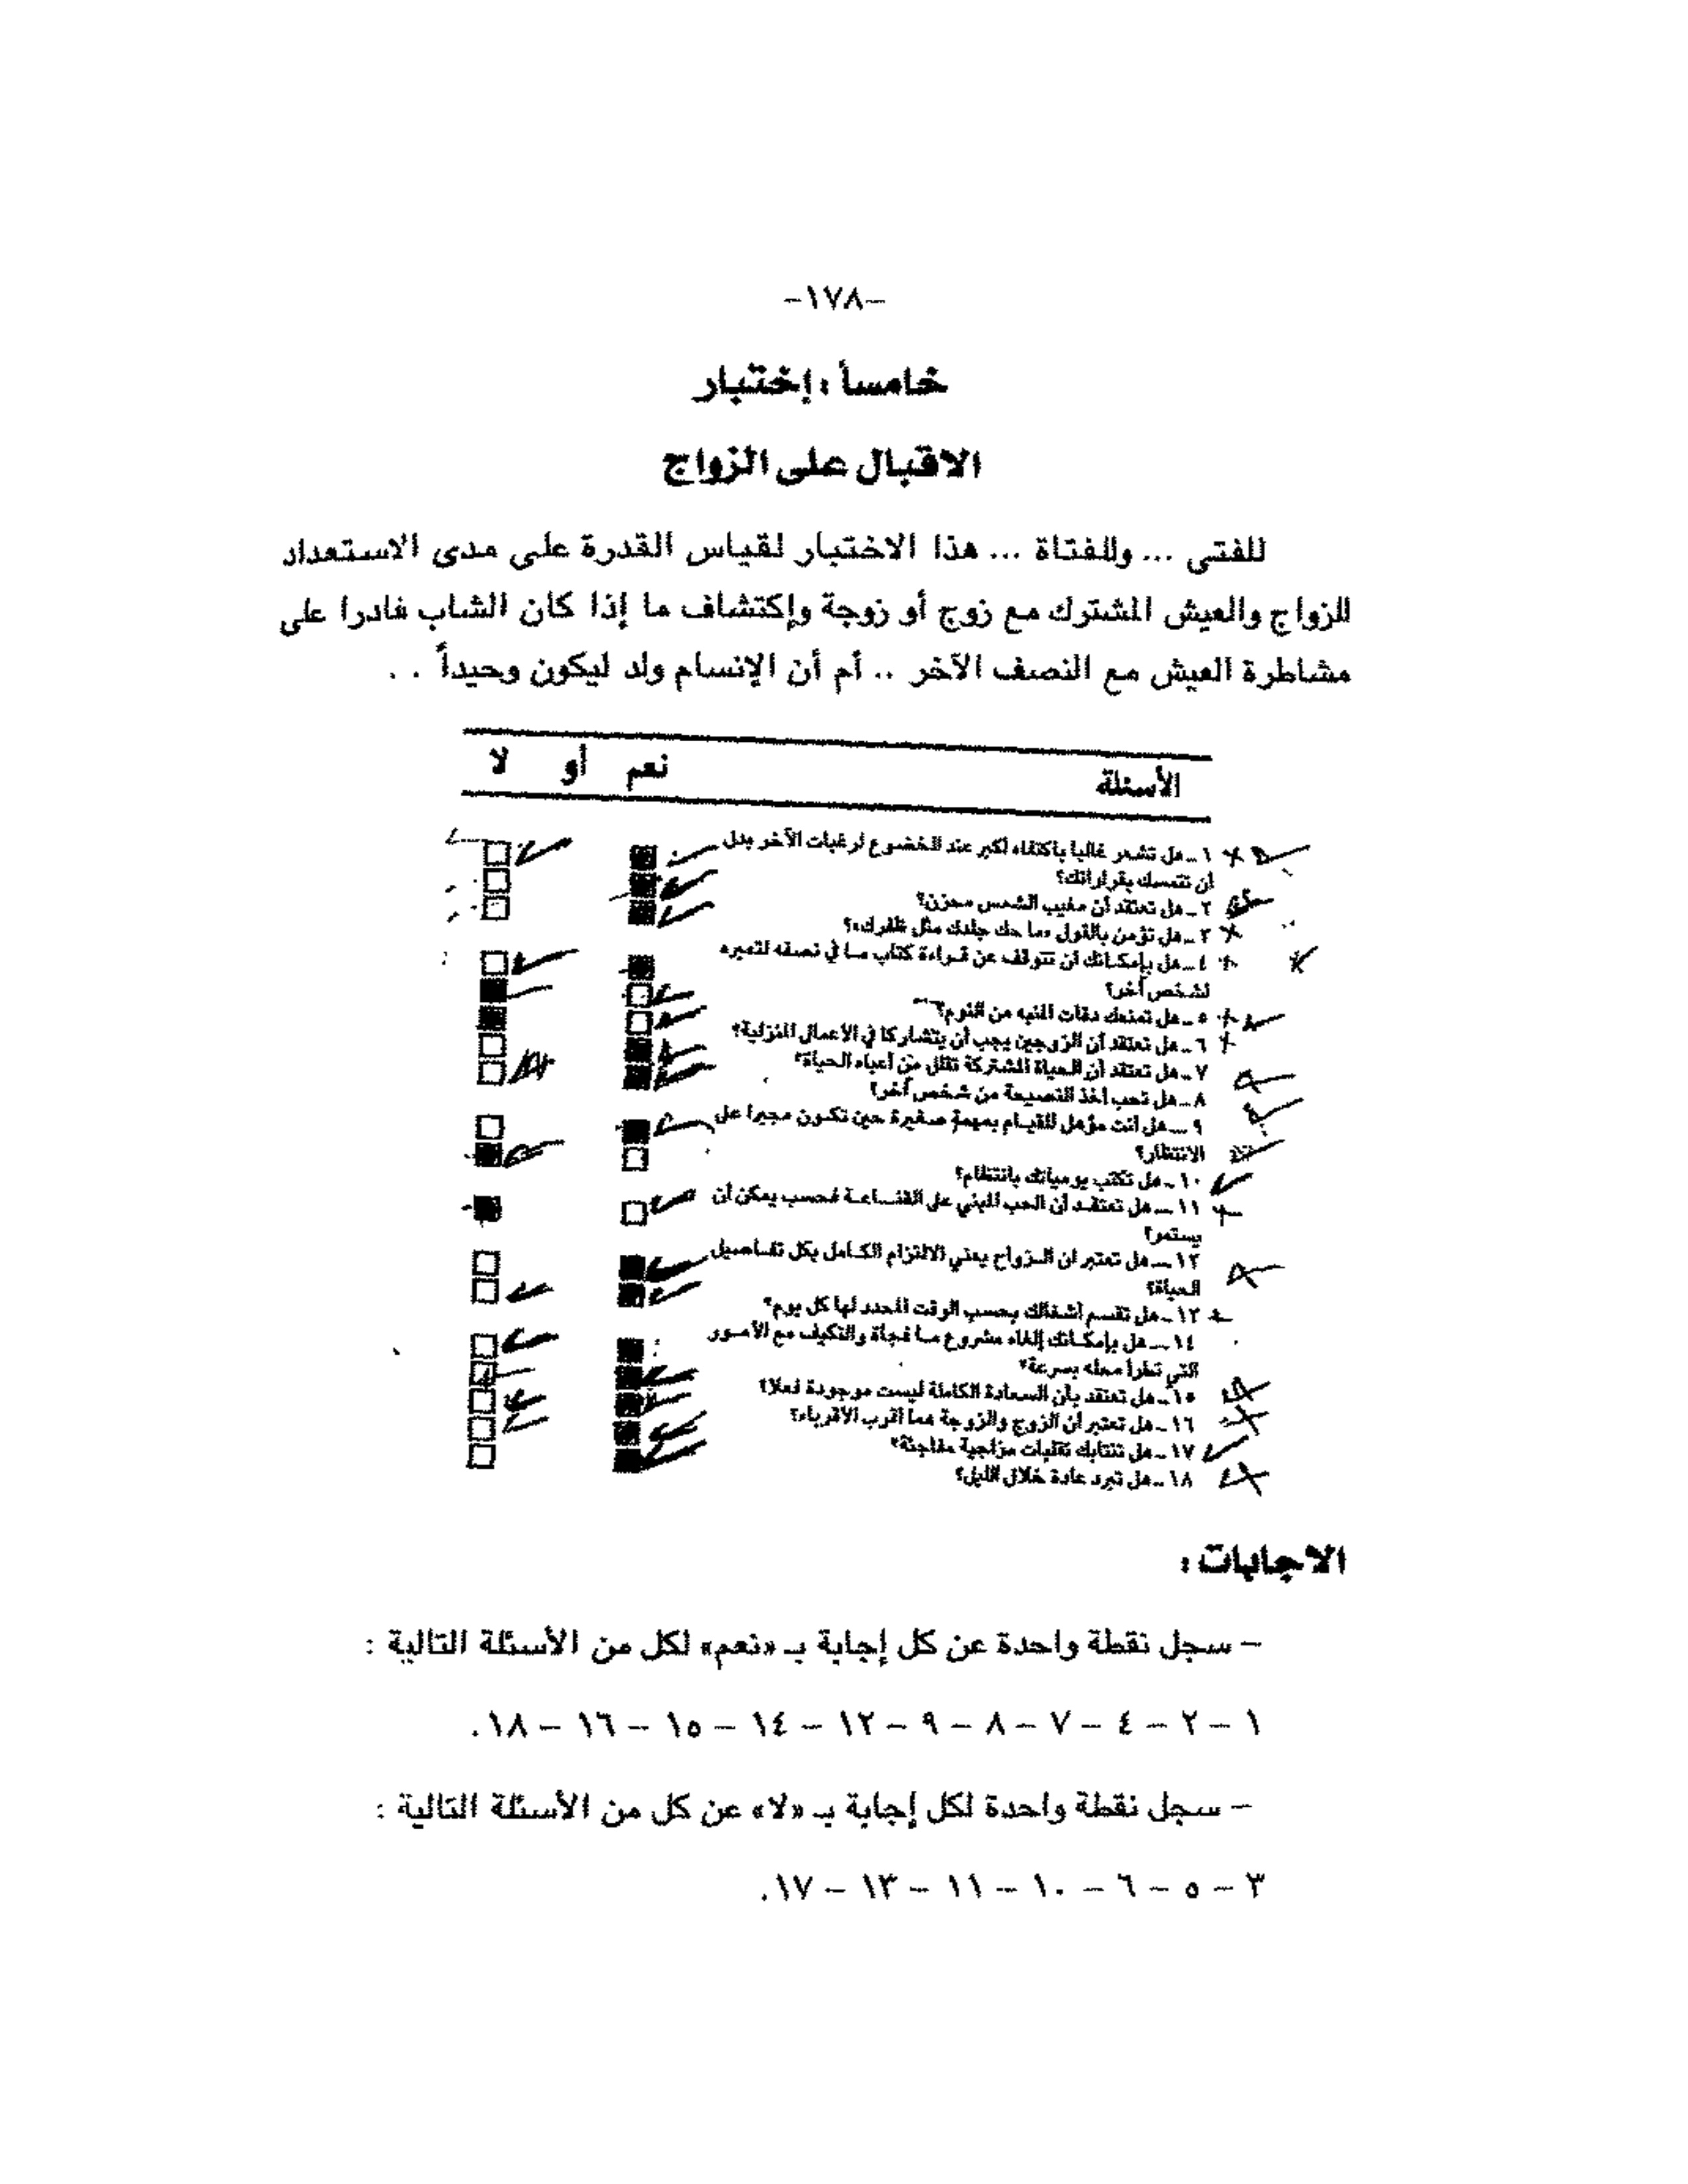 -١٧٨-
خامساً : إختبار
الاقبال على الزواج
للفتى ... وللفتاة ... هذا الاختبار لقياس القدرة على مدى الاستعداد
للزواج والعيش المشترك مع زوج أو زوجة وإكتشاف ما إذا كان الشاب قادرا على
مشاطرة العيش مع النصف الآخر .. أم أن الإنسام ولد ليكون وحيداً . .
الأسئلة نعم أو لا
١ ـ هل تشعر غالبا باكتفاء أكبر عند الخضوع لرغبات الآخر بدل
أن تتمسك بقراراتك؟
٢ ـ هل تعتقد أن مغيب الشمس محزن؟
٣ ـ هل تؤمن بالقول «ما حك جلدك مثل ظفرك»؟
٤ ـ هل بإمكانك أن تتوقف عن قراءة كتاب ما في نصفه لتعيره
لشخص آخر؟
٥ ـ هل تمنعك دقات المنبه من النوم؟
٦ ـ هل تعتقد أن الزوجين يجب أن يتشاركا في الأعمال المنزلية؟
٧ ـ هل تعتقد أن الحياة المشتركة تقلل من أعباء الحياة؟
٨ ـ هل تحب أخذ النصيحة من شخص آخر؟
٩ ـ هل أنت مؤهل للقيام بمهمة صغيرة حين تكون مجبرا على
الانتظار؟
١٠ ـ هل تكتب يومياتك بانتظام؟
١١ ـ هل تعتقد أن الحب المبني على القناعة فحسب يمكن أن
يستمر؟
١٢ ـ هل تعتبر ان الزواج يعني الالتزام الكامل بكل تفاصيل
الحياة؟
١٣ ـ هل تقسم أشغالك بحسب الوقت المحدد لها كل يوم؟
١٤ ـ هل بإمكانك إلغاء مشروع ما فجأة والتكيف مع الأمور
التي تطرأ محله بسرعة؟
١٥ ـ هل تعتقد بأن السعادة الكاملة ليست موجودة فعلا؟
١٦ ـ هل تعتبر أن الزوج والزوجة هما أقرب الأقرباء؟
١٧ ـ هل تنتابك تقلبات مزاجية مفاجئة؟
١٨ ـ هل تبرد عادة خلال الليل؟
الاجابات :
– سجل نقطة واحدة عن كل إجابة بـ «نعم» لكل من الأسئلة التالية :
١ – ٢ – ٤ – ٧ – ٨ – ٩ – ١٢ – ١٤ – ١٥ – ١٦ – ١٨.
– سجل نقطة واحدة لكل إجابة بـ «لا» عن كل من الأسئلة التالية :
٣ – ٥ – ٦ – ١٠ – ١١ – ١٣ – ١٧.